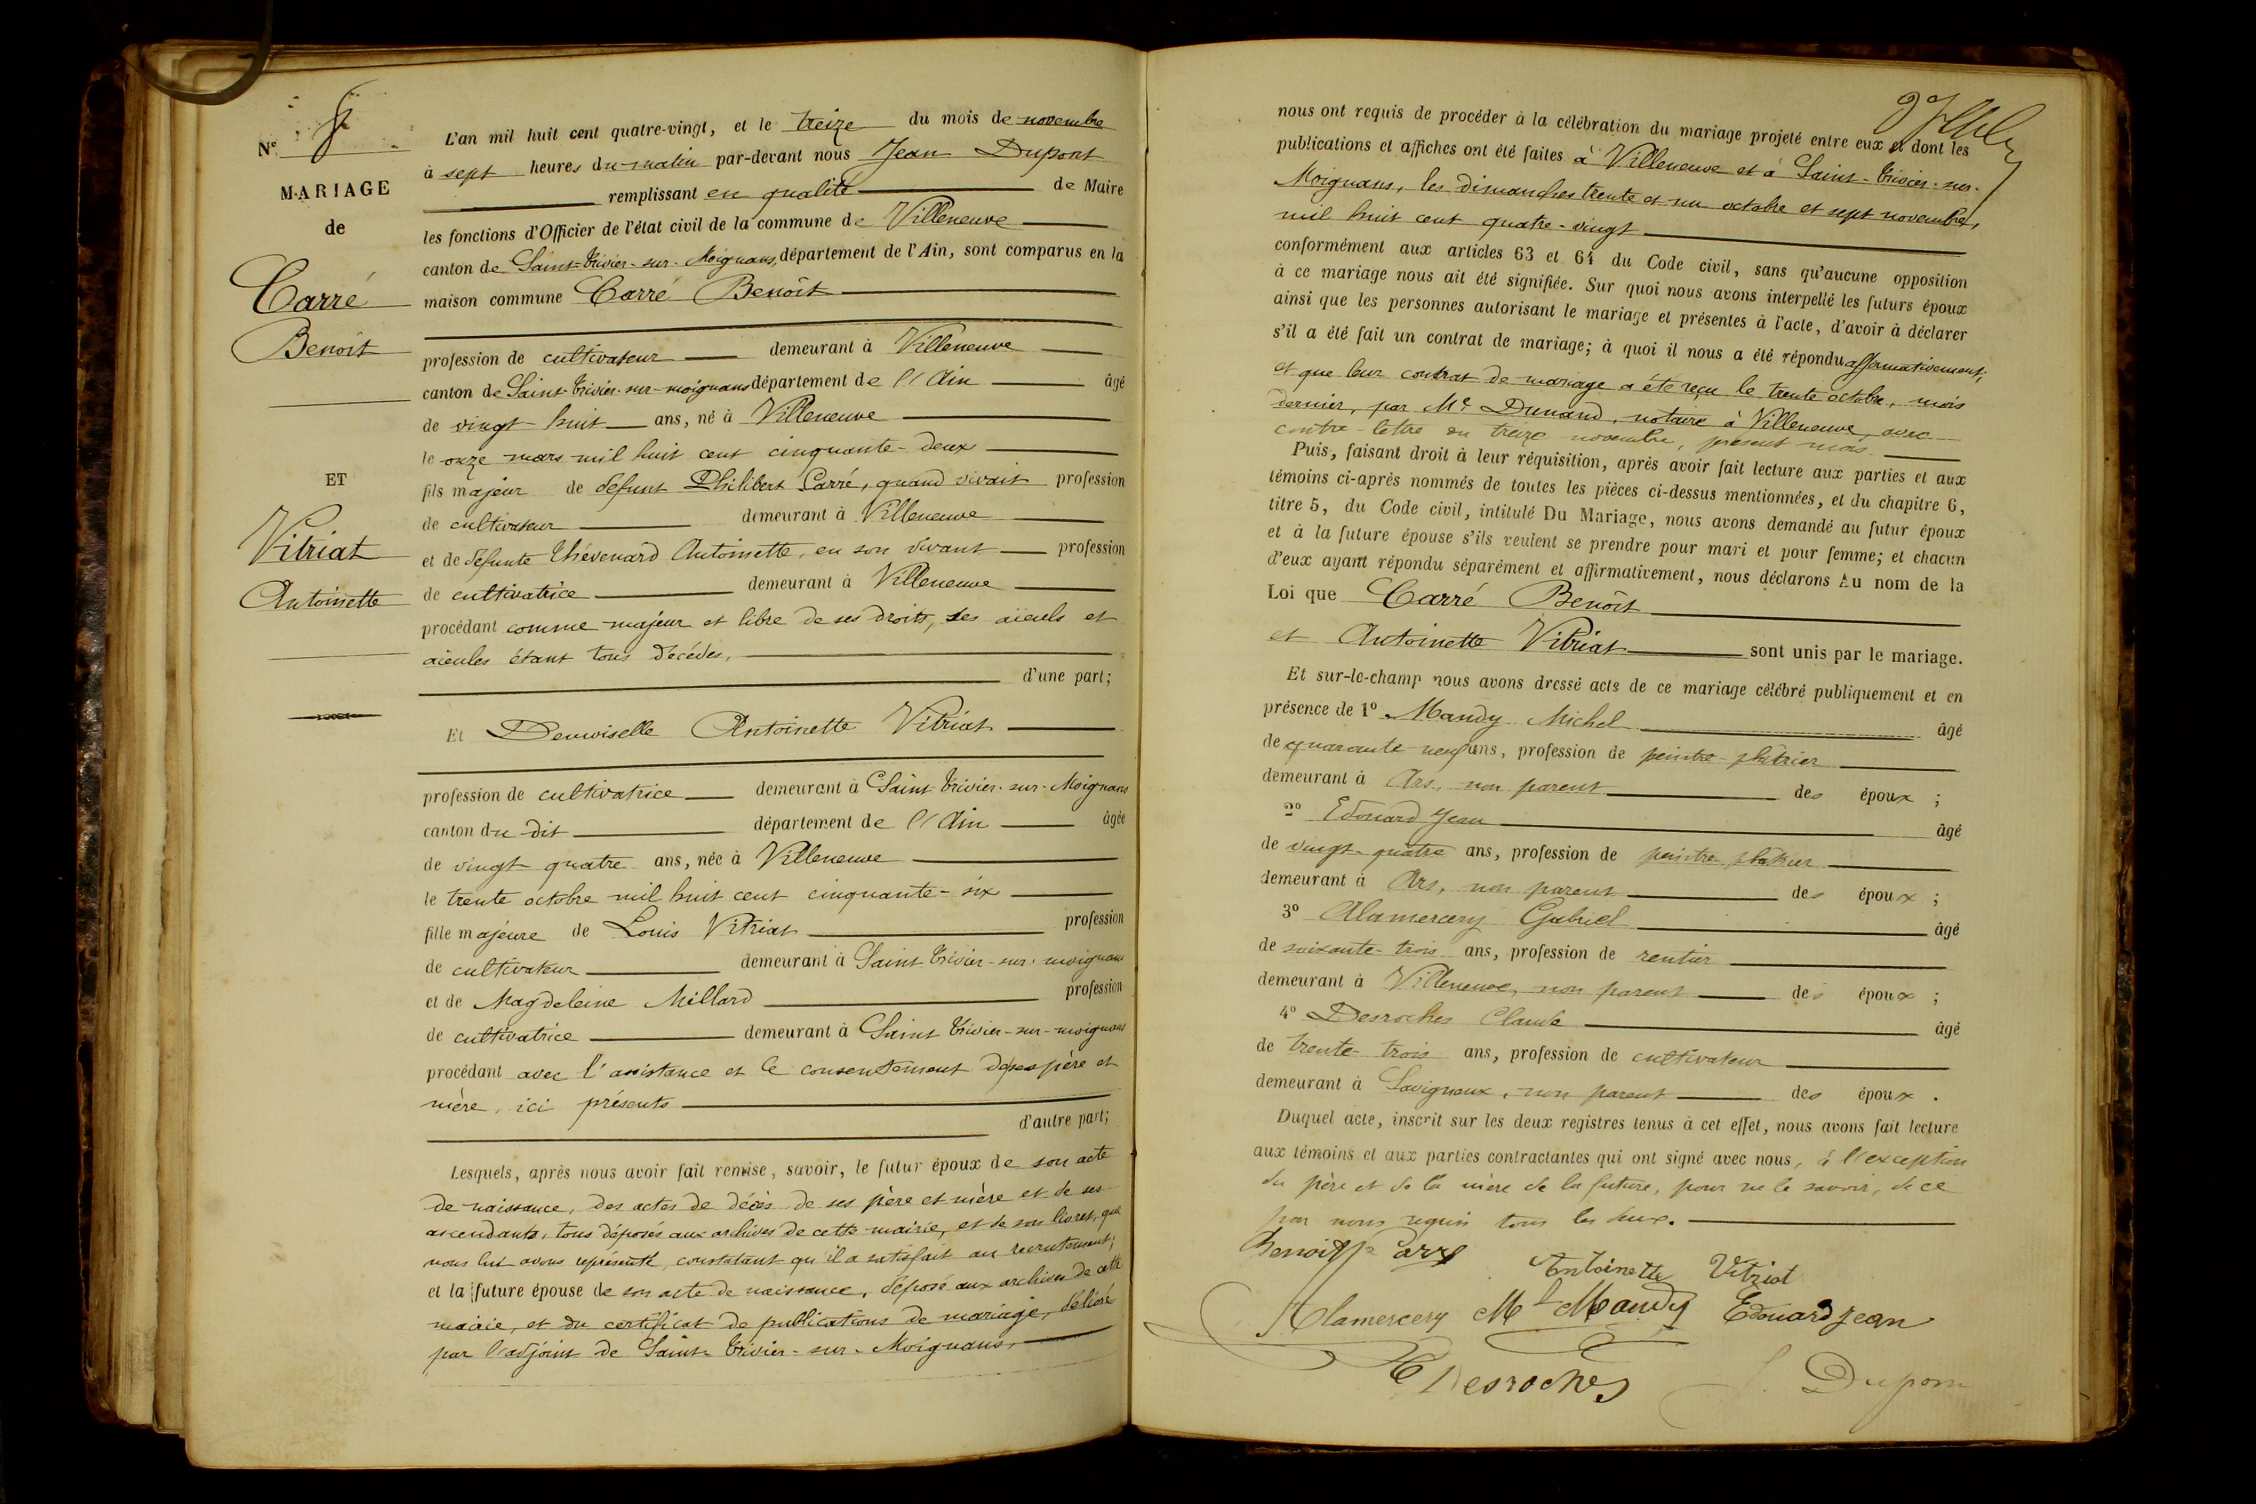 N° 8
MARIAGE
de
Carré
Benoit
ET
Vitriat
Antoinette
L'an mil huit cent quatre-vingt, et le treize du mois de novembre
à sept heures du matin par-devant nous Jean Dupont
remplissant en qualité de Maire
les fonctions d'Officier de l'état civil de la commune de Villeneuve
canton de Saint-Trivier-sur-Moignans, département de l'Ain, sont comparus en la
maison commune Carré Benoît
profession de cultivateur demeurant à Villeneuve
canton de Saint-Trivier-sur-moignans département de l'Ain âgé
de vingt-huit ans, né à Villeneuve
le onze mars mil huit cent cinquante-deux
fils majeur de défunt Philibert Carré, quand vivait profession
de cultivateur demeurant à Villeneuve
et de défunte Thévenard Antoinette, en son vivant profession
de cultivatrice demeurant à Villeneuve
procédant comme majeur et libre de ses droits, ses aïeuls et
aïeules étant tous décédés,
d'une part;
Et Demoiselle Antoinette Vitriat
profession de cultivatrice demeurant à Saint-Trivier-sur-Moignans
canton du dit département de l'Ain âgée
de vingt quatre ans, née à Villeneuve
le trente octobre mil huit cent cinquante-six
fille majeure de Louis Vitriat profession
de cultivateur demeurant à Saint-Trivier-sur-moignans
et de Magdeleine Millard profession
de cultivatrice demeurant à Saint Trivier-sur-moignans
procédant avec l'assistance et le consentement de ses père et
mère, ici présents
d'autre part;
Lesquels, après nous avoir fait remise, savoir, le futur époux de son acte
de naissance, des actes de décès de ses père et mère et de ses
ascendants, tous déposés aux archives de cette mairie, et de son livret, que
nous lui avons représenté, constatant qu'il a satisfait au recrutement;
et la future épouse de son acte de naissance, déposé aux archives de cette
mairie, et du certificat de publications de mariage, délivré
par l'adjoint de Saint-Trivier-sur-Moignans,
nous ont requis de procéder à la célébration du mariage projeté entre eux et dont les
publications et affiches ont été faites à Villeneuve et à Saint-Trivier-sur-
Moignans, les dimanches trente et un octobre et sept novembre,
mil huit cent quatre-vingt
conformément aux articles 63 et 64 du Code civil, sans qu'aucune opposition
à ce mariage nous ait été signifiée. Sur quoi nous avons interpellé les futurs époux
ainsi que les personnes autorisant le mariage et présentes à l'acte, d'avoir à déclarer
s'il a été fait un contrat de mariage; à quoi il nous a été répondu affirmativement,
et que leur contrat de mariage a été reçu le trente octobre, mois
dernier, par Me Dunand, notaire à Villeneuve, avec
contre-lettre du treize novembre, présent mois.
Puis, faisant droit à leur réquisition, après avoir fait lecture aux parties et aux
témoins ci-après nommés de toutes les pièces ci-dessus mentionnées, et du chapitre 6,
titre 5, du Code civil, intitulé Du Mariage, nous avons demandé au futur époux
et à la future épouse s'ils veulent se prendre pour mari et pour femme; et chacun
d'eux ayant répondu séparément et affirmativement, nous déclarons Au nom de la
Loi que Carré Benoît
et Antoinette Vitriat sont unis par le mariage.
Et sur-le-champ nous avons dressé acte de ce mariage célébré publiquement et en
présence de 1° Mandy Michel âgé
de quarante-neuf ans, profession de peintre-plâtrier
demeurant à Ars, non parent des époux ;
2° Edouard Jean âgé
de vingt-quatre ans, profession de peintre plâtrier
demeurant à Ars, non parent des époux ;
3° Alamercery Gabriel âgé
de soixante-trois ans, profession de rentier
demeurant à Villeneuve, non parent des époux ;
4° Desroches Claude âgé
de trente-trois ans, profession de cultivateur
demeurant à Savigneux, non parent des époux .
Duquel acte, inscrit sur les deux registres tenus à cet effet, nous avons fait lecture
aux témoins et aux parties contractantes qui ont signé avec nous, à l'exception
du père et de la mère de la future, pour ne le savoir, de ce
par nous requis tous les deux.
Benoit Carré
Antoinette Vitriat
Alamercery Ml Mandy Edouard Jean
C Desroches J. Dupont